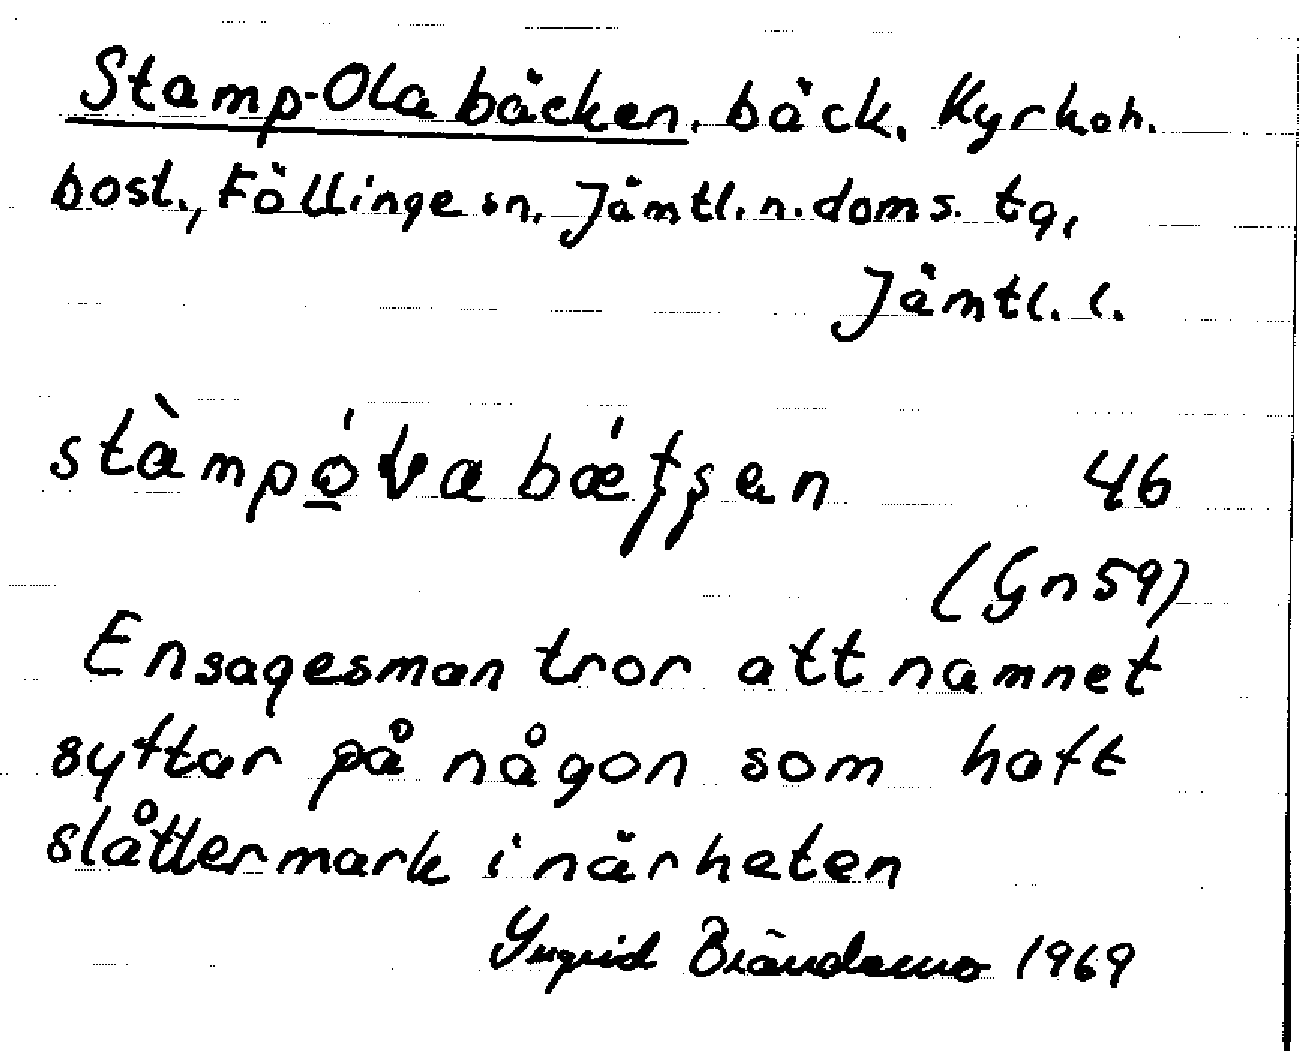 Stamp-Olabäcken, bäck. Kyrkoh.
bost., Föllinge sn, Jämtl. n. doms. tg,
Jämtl. l.
stàmpó̲vabǽtʃen 46
(Gn 59)
En sagesman tror att namnet
syftar på någon som haft
slåttermark i närheten
Yngrid Brändamo 1969